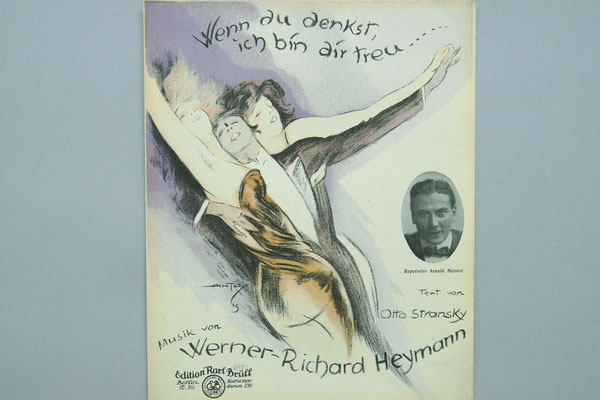 Wenn du denkst,
ich bin dir treu........
Repertoire Arnold Meister
Text von
Otto Stransky
Musik von
Werner-Richard Heymann
Edition Karl Brüll
Berlin
W. 50.
Kurfürsten-
damm 230